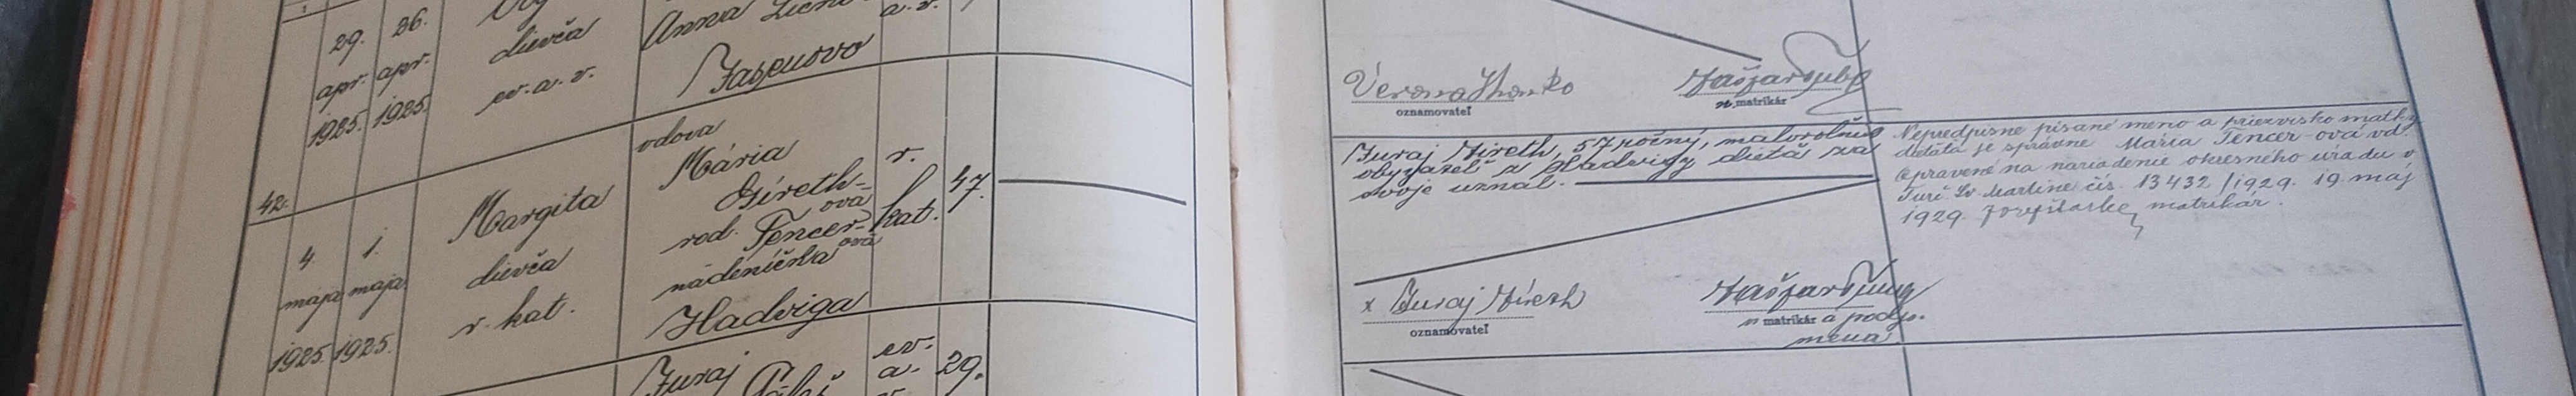 29.
26.
dievča
Anna
a. v.
apr.
apr.
1925.
1925.
ev. a. v.
Jasenovo
42.
4.
1.
mája
mája
1925.
1925.
Margita
dievča
r. kat.
vdova
Mária
Gireth-
ová
rod. Tencer-
ová
nádeníčka
Hadviga
r.
kat.
47.
Juraj
ev.
a.
29.
Verona
oznamovateľ
matrikár
Juraj Gireth, 57 ročný, maloroľník
obyvateľ z Hadvigy dieťa za
svoje uznal.
x Juraj Gireth
oznamovateľ
matrikár a podp.
mena
Nepredpisne písané meno a priezvisko matky
dieťaťa je správne Mária Tencer-ová vd.
Opravené na nariadenie okresného úradu v
Turč. Sv. Martine čís. 13432/1929. 19. máj
1929. matrikár.